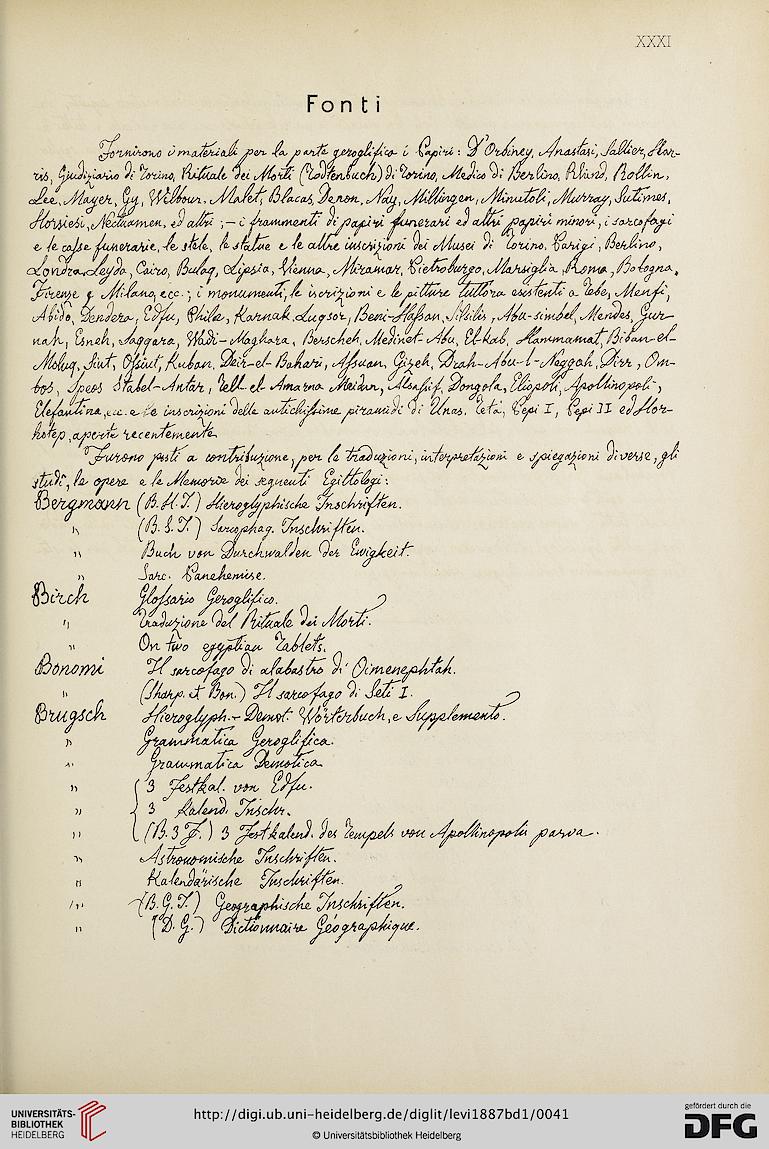 XXXI
Fonti
Fornirono i materiali per la parte geroglifica i Papiri: D'Orbiney, Anastasi, Sallier, Har-
ris, Giudiziario di Torino, Rituale dei Morti (Todtenbuch) di Torino, Medico di Berlino, Rhind, Rollin,
Lee, Mayer, Gy, Wilbour, Malet, Blacas, Denon, Nay, Millingen, Minutoli, Murray, Sutimes,
Horsiesi, Nectiamen, ed altri ;– i frammenti di papiri funerari ed altri papiri minori, i sarcofagi
e le casse funerarie, le stele, le statue e le altre inscrizioni dei Musei di Torino, Parigi, Berlino,
Londra, Leyda, Cairo, Bulaq, Lipsia, Vienna, Miramar, Pietroburgo, Marsiglia, Roma, Bologna,
Firenze e Milano, ecc.; i monumenti, le iscrizioni e le pitture tuttora esistenti a Tebe, Menfi,
Abido, Dendera, Edfu, Phile, Karnak, Luqsor, Beni-Hassan, Silsilis, Abu-simbel, Mendes, Gur-
nah, Esneh, Saqqara, Wadi-Maghara, Berscheh, Medinet-Abu, El-Kab, Hammamat, Biban-el-
Moluq, Siut, Ossiut, Kuban, Deir-el-Bahari, Assuan, Gizeh, Drah-Abu-l-Neggah, Dirr, Om-
bos, Speos Stabel-Antar, Tell-el-Amarna, Meidun, Assassif, Dongola, Eliopoli, Apollinopoli,
Elefantina, ecc. e le inscrizioni delle antichissime piramidi di Unas, Teta, Pepi I, Pepi II ed Hor-
hotep, aperte recentemente.
Furono posti a contribuzione, per le traduzioni, interpretazioni e spiegazioni diverse, gli
studi, le opere e le Memorie dei seguenti Egittologi:
Bergmann (B.H.I.) Hieroglyphische Inschriften.
" (B.S.I.) Sarcophag. Inschriften.
" Buch von Durchwalden der Ewigkeit.
" Sarc. Panehemise.
Birch Glossario Geroglifico.
" Traduzione del Rituale dei Morti.
" On two egyptian Tablets.
Bonomi Il sarcofago di alabastro di Oimenephtah.
" (Sharp. et Bon.) Il sarcofago di Seti I.
Brugsch Hieroglyph.-Demot. Wörterbuch, e Supplemento.
" Grammatica Geroglifica.
" Grammatica Demotica
" 3 Festkal. von Edfu.
" 3 Kalend. Inschr.
" (B.3F.) 3 Festkalend. des Tempels von Apollinopolis parva.
" Astronomische Inschriften.
" Kalendärische Inschriften.
" (B.G.I.) Geographische Inschriften.
" (D.G.) Dictionnaire Géographique.
UNIVERSITÄTS-
BIBLIOTHEK
HEIDELBERG
http://digi.ub.uni-heidelberg.de/diglit/levi1887bd1/0041
© Universitätsbibliothek Heidelberg
gefördert durch die
DFG